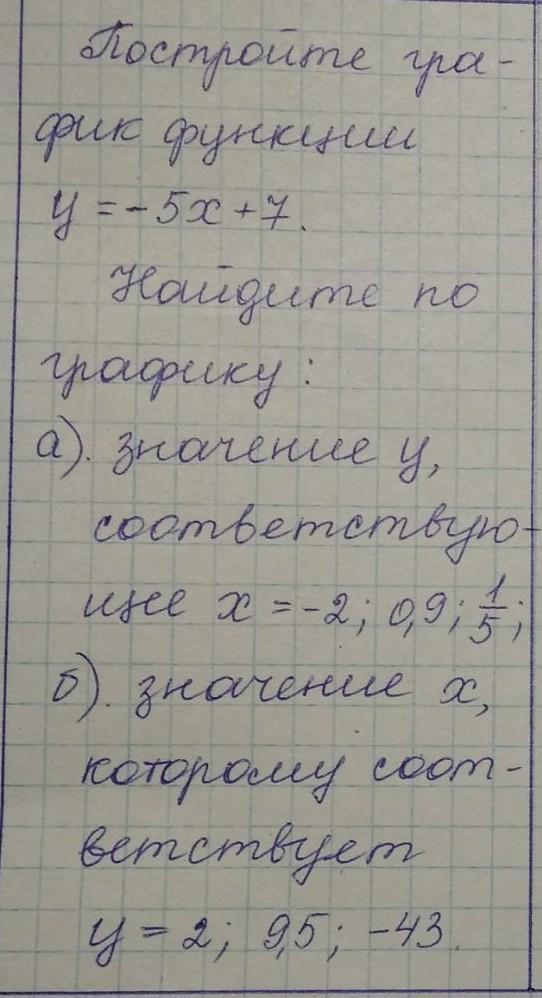 Постройте гра-
фик функции
y = -5x + 7.
Найдите по
графику:
а). значение y,
соответствую-
щее x = -2; 0,9; 1/5;
б). значение x,
которому соот-
ветствует
y = 2; 9,5; -43.